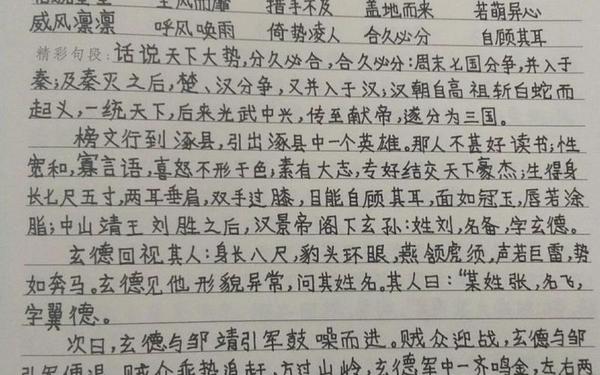 望风而靡 措手不及 盖地而来 若萌异心
威风凛凛 呼风唤雨 倚势凌人 合久必分 自顾其耳
精彩句段:话说天下大势,分久必合,合久必分:周末七国分争,并入于
秦;及秦灭之后,楚、汉分争,又并入于汉;汉朝自高祖斩白蛇而
起义,一统天下,后来光武中兴,传至献帝,遂分为三国。
榜文行到涿县,引出涿县中一个英雄。那人不甚好读书;性
宽和,寡言语,喜怒不形于色;素有大志,专好结交天下豪杰;生得身
长七尺五寸,两耳垂肩,双手过膝,目能自顾其耳,面如冠玉,唇若涂
脂;中山靖王刘胜之后,汉景帝阁下玄孙:姓刘,名备,字玄德。
玄德回视其人:身长八尺,豹头环眼,燕颔虎须,声若巨雷,势
如奔马。玄德见他形貌异常,问其姓名。其人曰:“某姓张,名飞,
字翼德。
次日,玄德与邹靖引军鼓噪而进。贼众迎战,玄德与邹
引军便退。贼众乘势追赶,方过山岭,玄德军中一齐鸣金,左右两